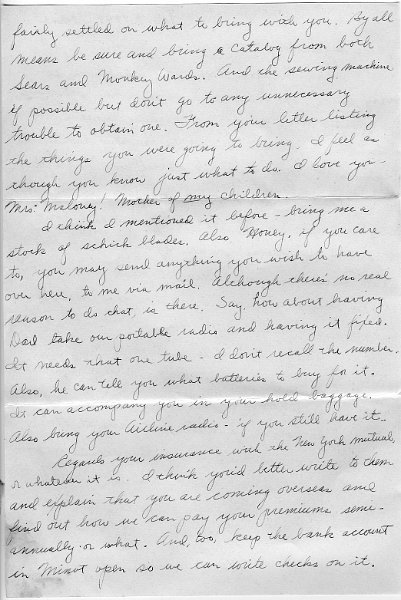 fairly settled on what to bring with you. By all
means be sure and bring a catalog from both
Sears and Monkey Wards. And the sewing machine
if possible but don't go to any unnecessary
trouble to obtain one. From your letter listing
the things you were going to bring. I feel as
though you know just what to do. I love you -
Mrs. Maloney! Mother of my children.
I think I mentioned it before - bring me a
stock of schick blades. Also Honey, if you care
to, you may send anything you wish to have
over here, to me via mail. Although there's no real
reason to do that, is there. Say, how about having
Dad take our portable radio and having it fixed.
It needs that one tube - I don't recall the number.
Also, he can tell you what batteries to buy for it.
It can accompany you in your hold baggage.
Also bring your Airline radio - if you still have it.
Regards your insurance with the New York mutual,
or whatever it is. I think you'd better write to them
and explain that you are coming overseas and
find out how we can pay your premiums semi-
annually or what. And, too, keep the bank account
in Minot open so we can write checks on it.